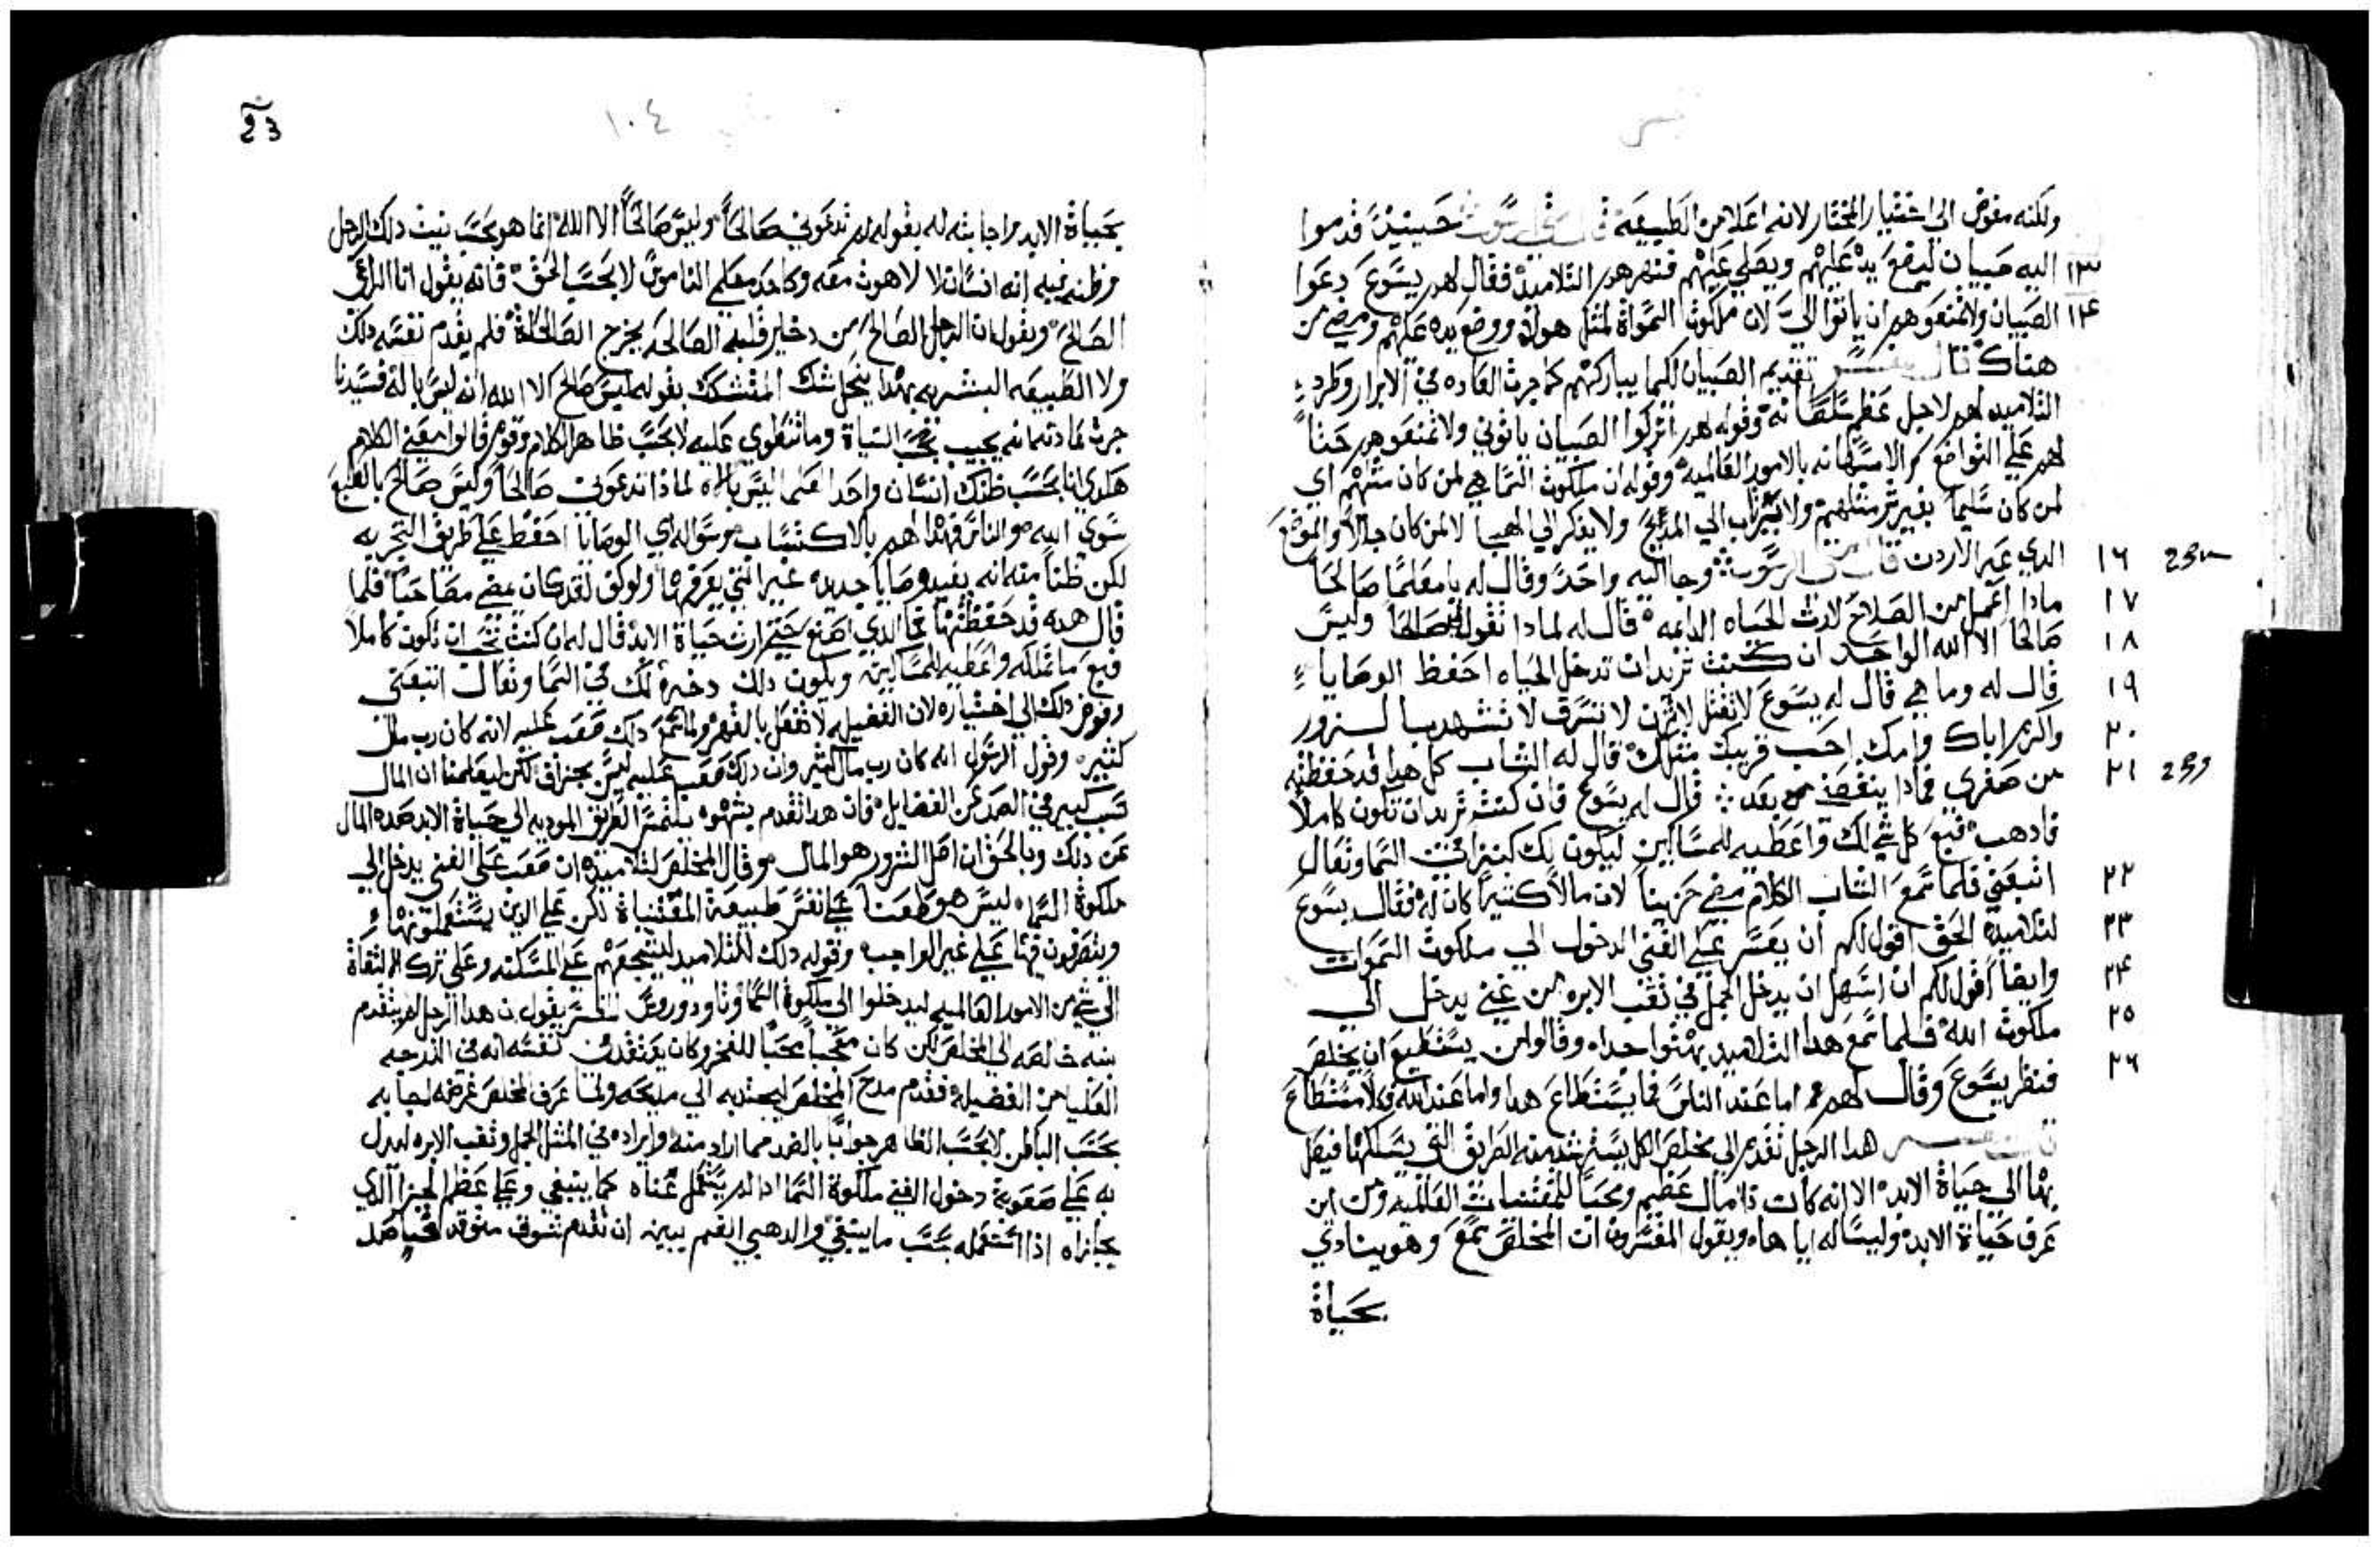 ولكنه مفوض الي اختيار المختار لانه اعلا من الطبيعه قال متي الرسول حينيذ قدموا
١٣ اليه صبيان ليضع يده عليهم ويصلي عليهم فنهرهم التلاميذ فقال لهم يسوع دعوا
١٤ الصبيان ولا تمنعوهم ان ياتوا اليّ لان ملكوت السمواة لمثل هولاء ووضع يده عليهم ومضي من
هناك قال المفسر تقديم الصبيان لكيما يباركهم كما جرت العاده في الابرار وطرد
التلاميد لهم لاجل عظم سلطانه وقوله لهم اتركوا الصبيان ياتوني ولا تمنعوهم حثاً
لهم علي التواضع والاستهانه بالامور العالميه وقوله ان ملكوت السما هي لمن كان مثلهم اي
لمن كان سليماً بغير شر مثلهم ولا ينساب الي المديح ولا يفكر الي الهبا لا لمن كان جالاً والموضع
الدي عبر الاردن قال متي الرسول وجا اليه واحد وقال له يا معلماً صالحاً
١٦ 23
ماذا اعمل من الصلاح لارث الحياه الدايمه قال له لمادا تقول لي صالحاً وليس
١٧
صالحا الا الله الواحد ان كنت تريد ان تدخل الحياه احفظ الوصايا
١٨
قال له وما هي قال له يسوع لا تقتل لا تزن لا تسرق لا تشهد بالزور
١٩
واكرم اباك وامك احب قريبك مثلك قال له الشاب كل هدا قد حفظته
٢٠
من صغري فمادا ينقصني من بعد قال له يسوع فان كنت تريد ان تكون كاملاً
٢١
فادهب فبع كل شي لك واعطيه للمساكين ليكون لك كنيز اً في السما وتعال
اتبعني فلما سمع الشاب الكلام مضي حزيناً لان مالاً كثيراً كان له فقال يسوع
٢٢
لتلاميده الحق اقول لكم ان يعسر علي الغني الدخول الي ملكوت السموات
٢٣
وايضاً اقول لكم ان اسهل ان يدخل الجمل في ثقب الابره من غني يدخل الي
٢٤
ملكوت الله فلما سمع هدا التلاميد بهتوا جداً وقالوا من يستطيع ان يخلص
٢٥
فنظر يسوع وقال لهم اما عند الناس فما يستطاع هدا واما عند الله فكلاً مستطاع
٢٦
قال المفسر هدا الرجل تقدم الي مخلص الكل يسترشد منه الطريق التي يسلكها فيصل
بها الي حياة الابد الا انه كان دا مال عظيم ومحباً للمقتنيات العالميه ومن اين
عرف حياة الابد وليساله اياها ويقول المفسرون ان المخلص سمع وهو ينادي
بحياة
١٠٤
بحياة الابد واجابته له بقوله لم تدعوني صالحاً وليس صالحاً الا الله انما هو بحسب نيت دلك الرجل
وظنه فيه انه انسان لا لاهوت معه وكاحد معلمي الناموس لا بحسب الحق فانه يقول انا الراعي
الصالح ويقول ان الرجل الصالح من دخاير قلبه الصالحه يخرج الصالحاة فلم يقدم نفسه دلك
ولا الطبيعه البشريه بهدا ينحل شك المتشكك بقوله ليس صالح الا الله انه ليس باله فسيدنا
جرت عادته انه يجيب بحسب النياة وما تنطوي عليه لا بحسب ظاهر الكلام وقوم قالوا معني الكلام
هكدي انا بحسب ظنك انسان واحد اعمي ليس باله لماذا تدعوني صالحا وليس صالح بالطبع
سوي الله والناس فهدا لهم بالاكتساب وسواله اي الوصايا احفظ علي طريق التجربه
لكن ظناً منه انه يفيد وصايا جديده غير التي يعرفها ولو كف لقد كان مضي مصاحباً فلما
قال هده قد حفظتها فما الدي اصنع حتي ارث حياة الابد قال له ان كنت تحب ان تكون كاملاً
فبع ما تملكه واعطيه للمساكين ويكون دلك دخرة لك في السما وتعال اتبعني
وفوض دلك الي اختياره لان الفضيله لا تفعل بالقهر ولما سمع دلك صعب عليه لانه كان رب مال
كثير وقول الرسول انه كان رب مال كثير وان دلك صعب عليه ليس بجزاف لكن ليعلمنا ان المال
سبب كبير في الصد عن الفضايل فان هدا تقدم بشهوه يلتمس الطريق الموديه الي حياة الابد صده المال
عن دلك وبالحق ان اصل الشرور هو المال وقال المخلص لتلاميده ان صعب علي الغني يدخل الي
ملكوة السما ليس هو طعناً علي نفس طبيعة المقتناة لكن علي الدين يستعملونها
ويتصرفون فيها علي غير الواجب وقوله دلك للتلاميد ليشجعهم علي المسكنه وعلي ترك الالتفاة
الي شي من الامور العالميه ليدخلوا الي ملكوة السما وتاودوروس المفسر يقول ان هدا الرجل لم يتقدم
بنيه خالصه الي المخلص لكن كان معجباً محباً للفخر وكان يعتقد في نفسه انه في الدرجه
العليا من الفضيله فقدم مدح المخلص ليجتدبه الي مديحه ولما عرف المخلص غرضه اجابه
بحسب الباطن لا بحسب الظاهر جواباً بالضد مما اراد منه وايراده في المثل الجمل وثقب الابره ليدل
به علي صعوبة دخول الغني ملكوة السما ادا لم يستعمل غناه كما ينبغي وعلي عظم الجزا الدي
يجازاه اذا استعمله بحسب ما ينبغي والدهبي الفم يبين ان تقدم بشوق متوقد